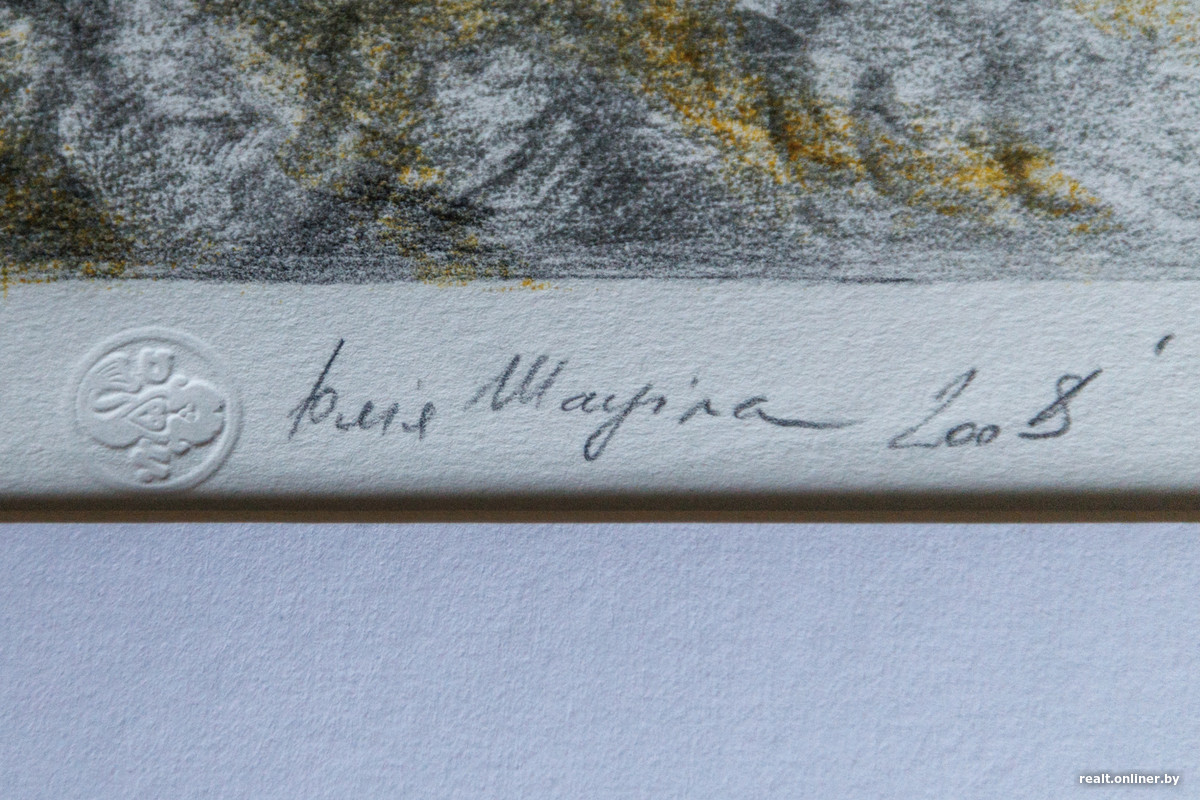 Юлія Шаціла 2008
realt.onliner.by